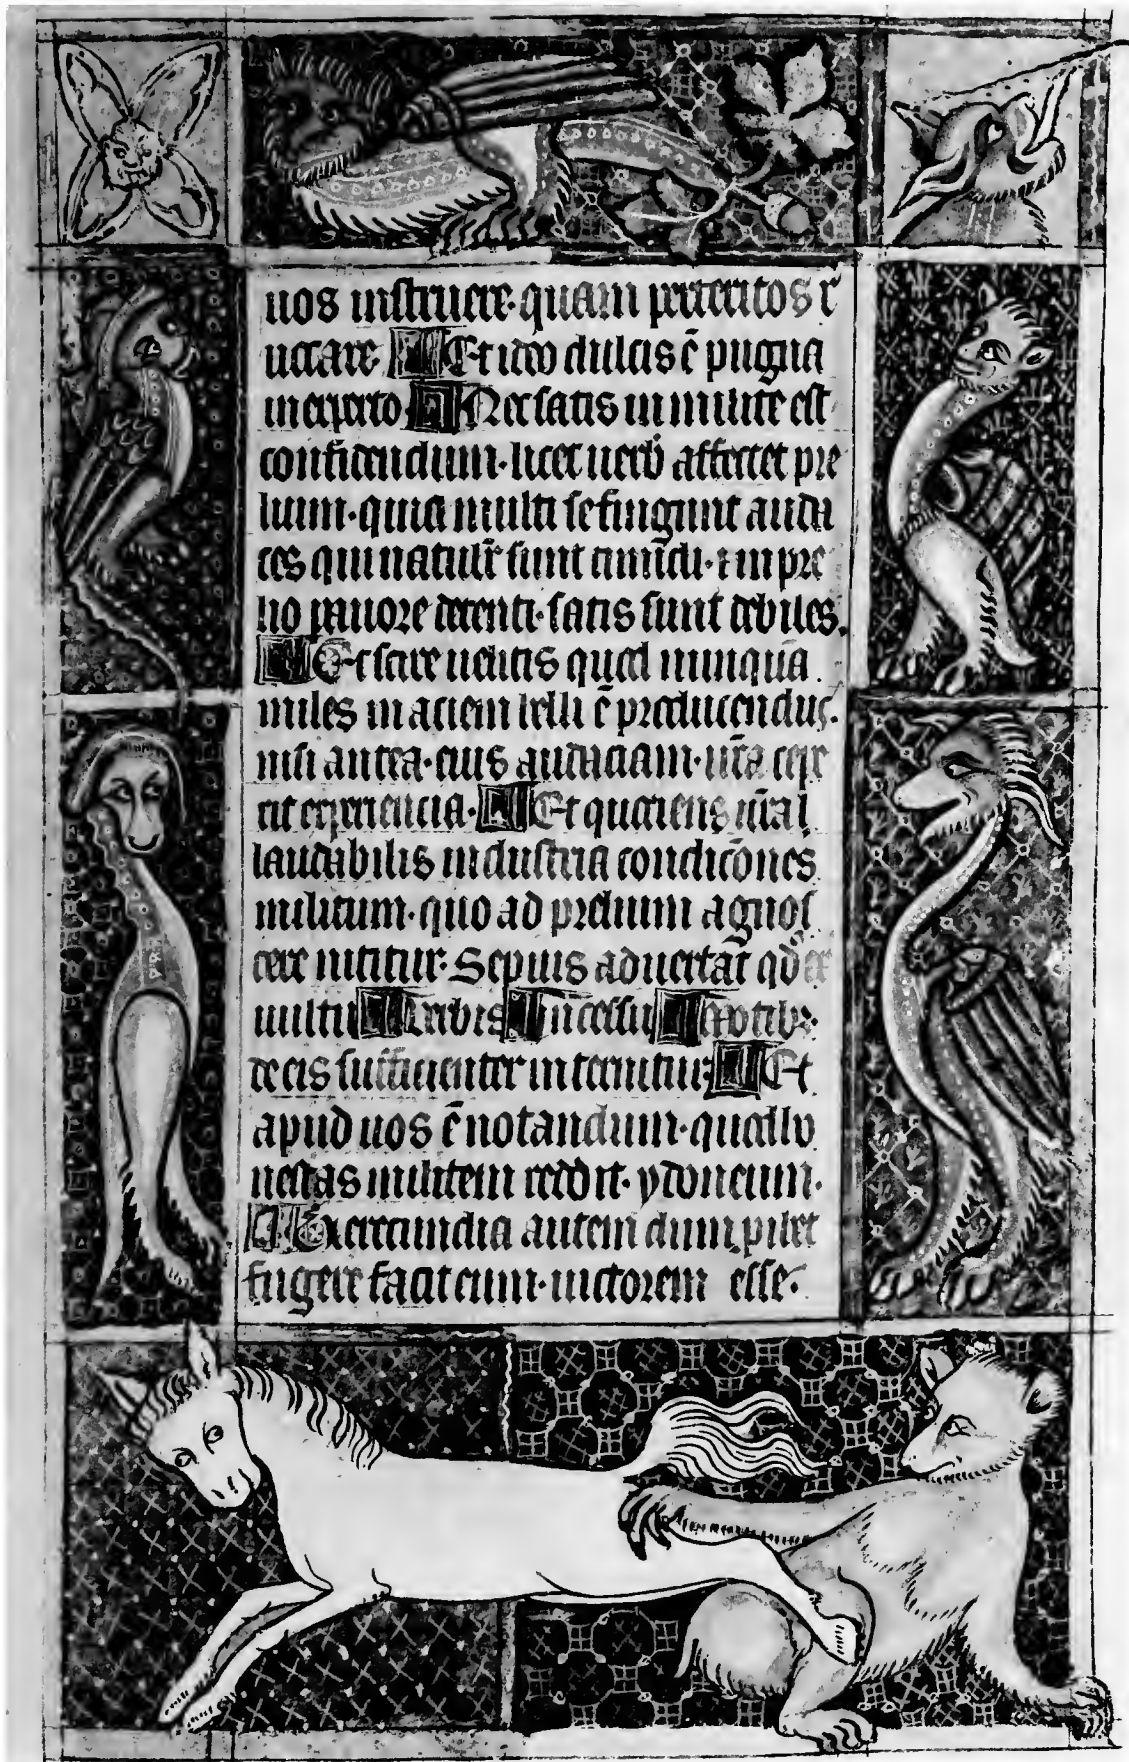 uos instruere· quam preteritos r
Et ideo dulcis ē pugna
inexperto Nec satis in milite est
confidendum· licet uerb̄ affectet pre
lium· quia multi se fingunt auda
ces qui natulr̄ sunt timidi· ⁊ in pre
lio pauore detenti· satis sunt debiles.
Et scire uelitis quod nunquā
miles in aciem belli ē producendus.
nisi antea· eius audaciam· ūra cepe
rit experiencia· Et quociens ūra
laudabilis industria condicōnes
militum· quo ad prelium agnos
cere nititur· Sepius aduertāt qd̄ ex
uultu Uerbis Incessu Motib;
de eis sufficienter in Et
apud uos ē notandum· quod ho
nestas militem reddit· ydoneum·
Uerecundia autem dum
fugere facit eum· uictorem esse·